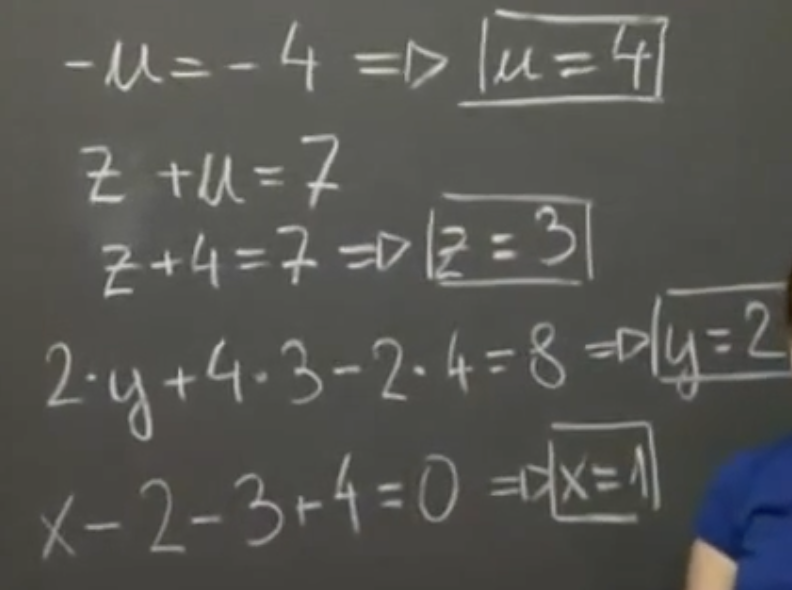 -u = -4 ⇒ u = 4
z + u = 7
z + 4 = 7 ⇒ z = 3
2·y + 4·3 - 2·4 = 8 ⇒ y = 2
x - 2 - 3 + 4 = 0 ⇒ x = 1